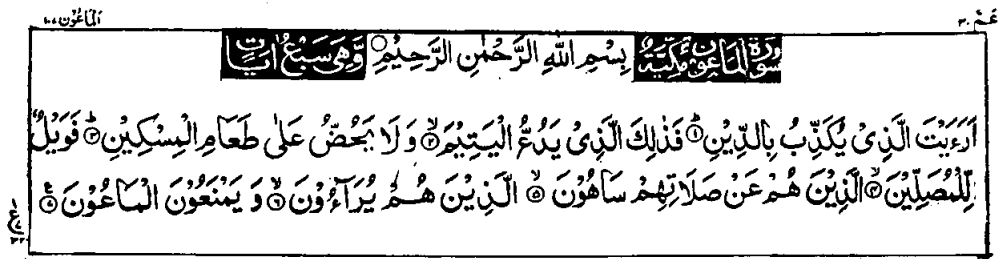 عَمَّ ٣٠
اَلْمَاعُوْن ١٠٧
سُوْرَةُ الْمَاعُوْنِ مَكِّيَّةٌ بِسْمِ اللّٰهِ الرَّحْمٰنِ الرَّحِيْمِ ○ وَّهِيَ سَبْعُ اٰيَاتٍ
اَرَءَيْتَ الَّذِىْ يُكَذِّبُ بِالدِّيْنِ ۱ فَذٰلِكَ الَّذِىْ يَدُعُّ الْيَتِيْمَ ۲ وَلَا يَحُضُّ عَلٰى طَعَامِ الْمِسْكِيْنِ ۳ فَوَيْلٌ
لِّلْمُصَلِّيْنَ ۴ الَّذِيْنَ هُمْ عَنْ صَلَاتِهِمْ سَاهُوْنَ ۵ الَّذِيْنَ هُمْ يُرَآءُوْنَ ۶ وَيَمْنَعُوْنَ الْمَاعُوْنَ ۷